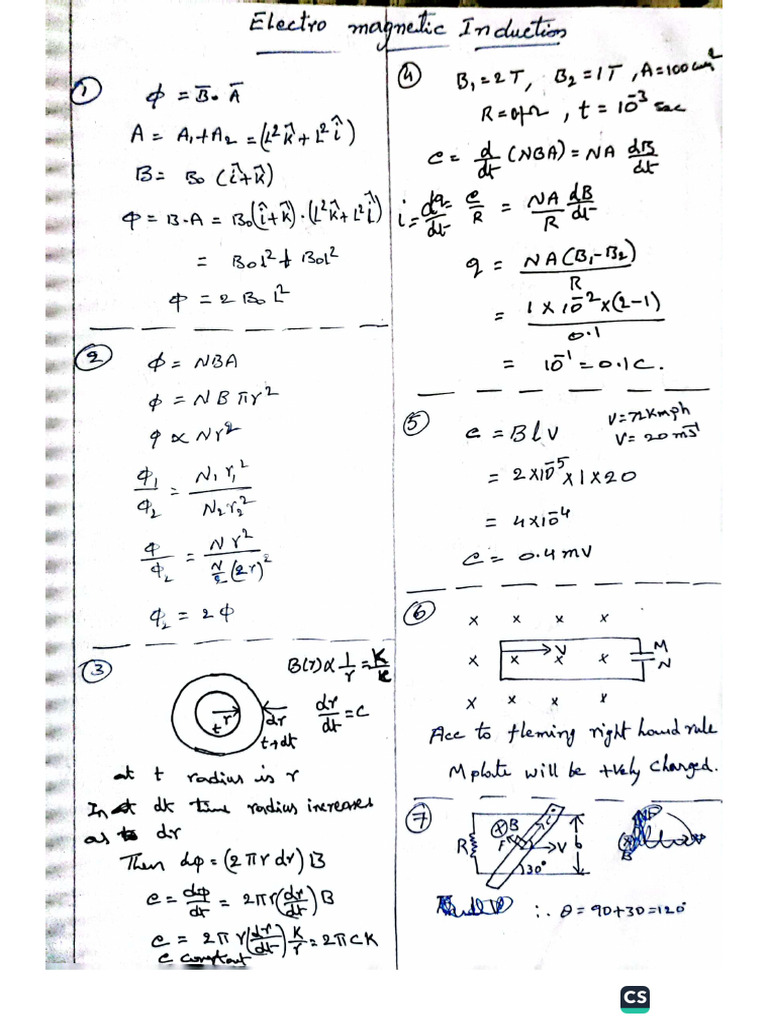 Electro magnetic Induction
①
ϕ = B̄ · Ā
A = A₁ + A₂ = (L²k̂ + L²î)
B = B₀ (î + k̂)
ϕ = B·A = B₀(î + k̂)·(L²k̂ + L²î)
= B₀L² + B₀L²
ϕ = 2 B₀ L²
②
ϕ = NBA
ϕ = N B πr²
ϕ ∝ Nr²
ϕ₁/ϕ₂ = N₁r₁²/N₂r₂²
ϕ/ϕ₂ = Nr²/(N/2 (2r)²)
ϕ₂ = 2ϕ
③
B(r) ∝ 1/r = K/r
r
t
dr
t+dt
dr/dt = C
at t radius is r
In dt time radius increases
as dr
Then dϕ = (2πr dr) B
e = dϕ/dt = 2πr(dr/dt) B
e = 2πr(dr/dt) K/r = 2πCK
e constant
④
B₁ = 2T, B₂ = 1T, A = 100 cm²
R = 0.1Ω, t = 10⁻³ sec
e = d/dt (NBA) = NA dB/dt
i = dq/dt = e/R = NA/R dB/dt
q = NA(B₁-B₂)/R
= 1 × 10⁻² × (2-1)/0.1
= 10⁻¹ = 0.1 C.
⑤
e = B l V
V = 72 Kmph
V = 20 ms⁻¹
= 2×10⁻⁵ × 1 × 20
= 4×10⁻⁴
e = 0.4 mV
⑥
x x x x
x x x x
V
M
N
x x x x
Acc to fleming right hand rule
M plate will be +vely charged.
⑦
R
ⓧ B
F
V
30°
B
∴ θ = 90+30 = 120°
CS